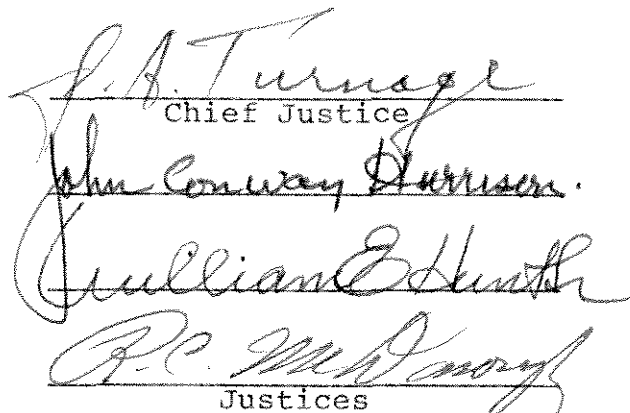 J. A. Turnage
Chief Justice
John Conway Harrison.
William E Hunt Sr
R. C. McDonough
Justices